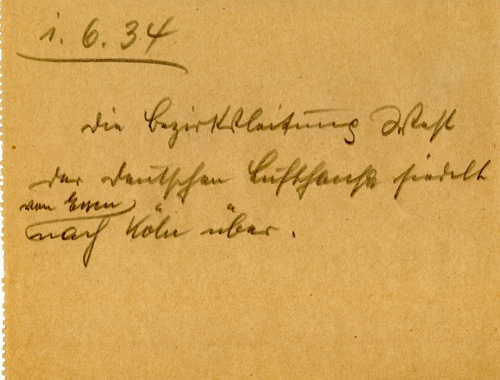 1. 6. 34
Die Bezirksleitung West
der Deutschen Lufthansa siedelt
von Essen
nach Köln über.